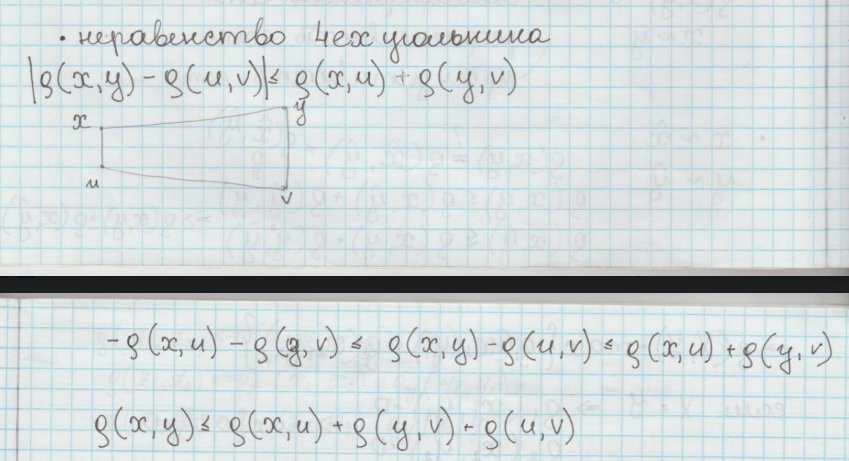 · неравенство 4ех угольника
|ρ(x,y) - ρ(u,v)| ≤ ρ(x,u) + ρ(y,v)
x y
u v
-ρ(x,u) - ρ(y,v) ≤ ρ(x,y) - ρ(u,v) ≤ ρ(x,u) + ρ(y,v)
ρ(x,y) ≤ ρ(x,u) + ρ(y,v) + ρ(u,v)